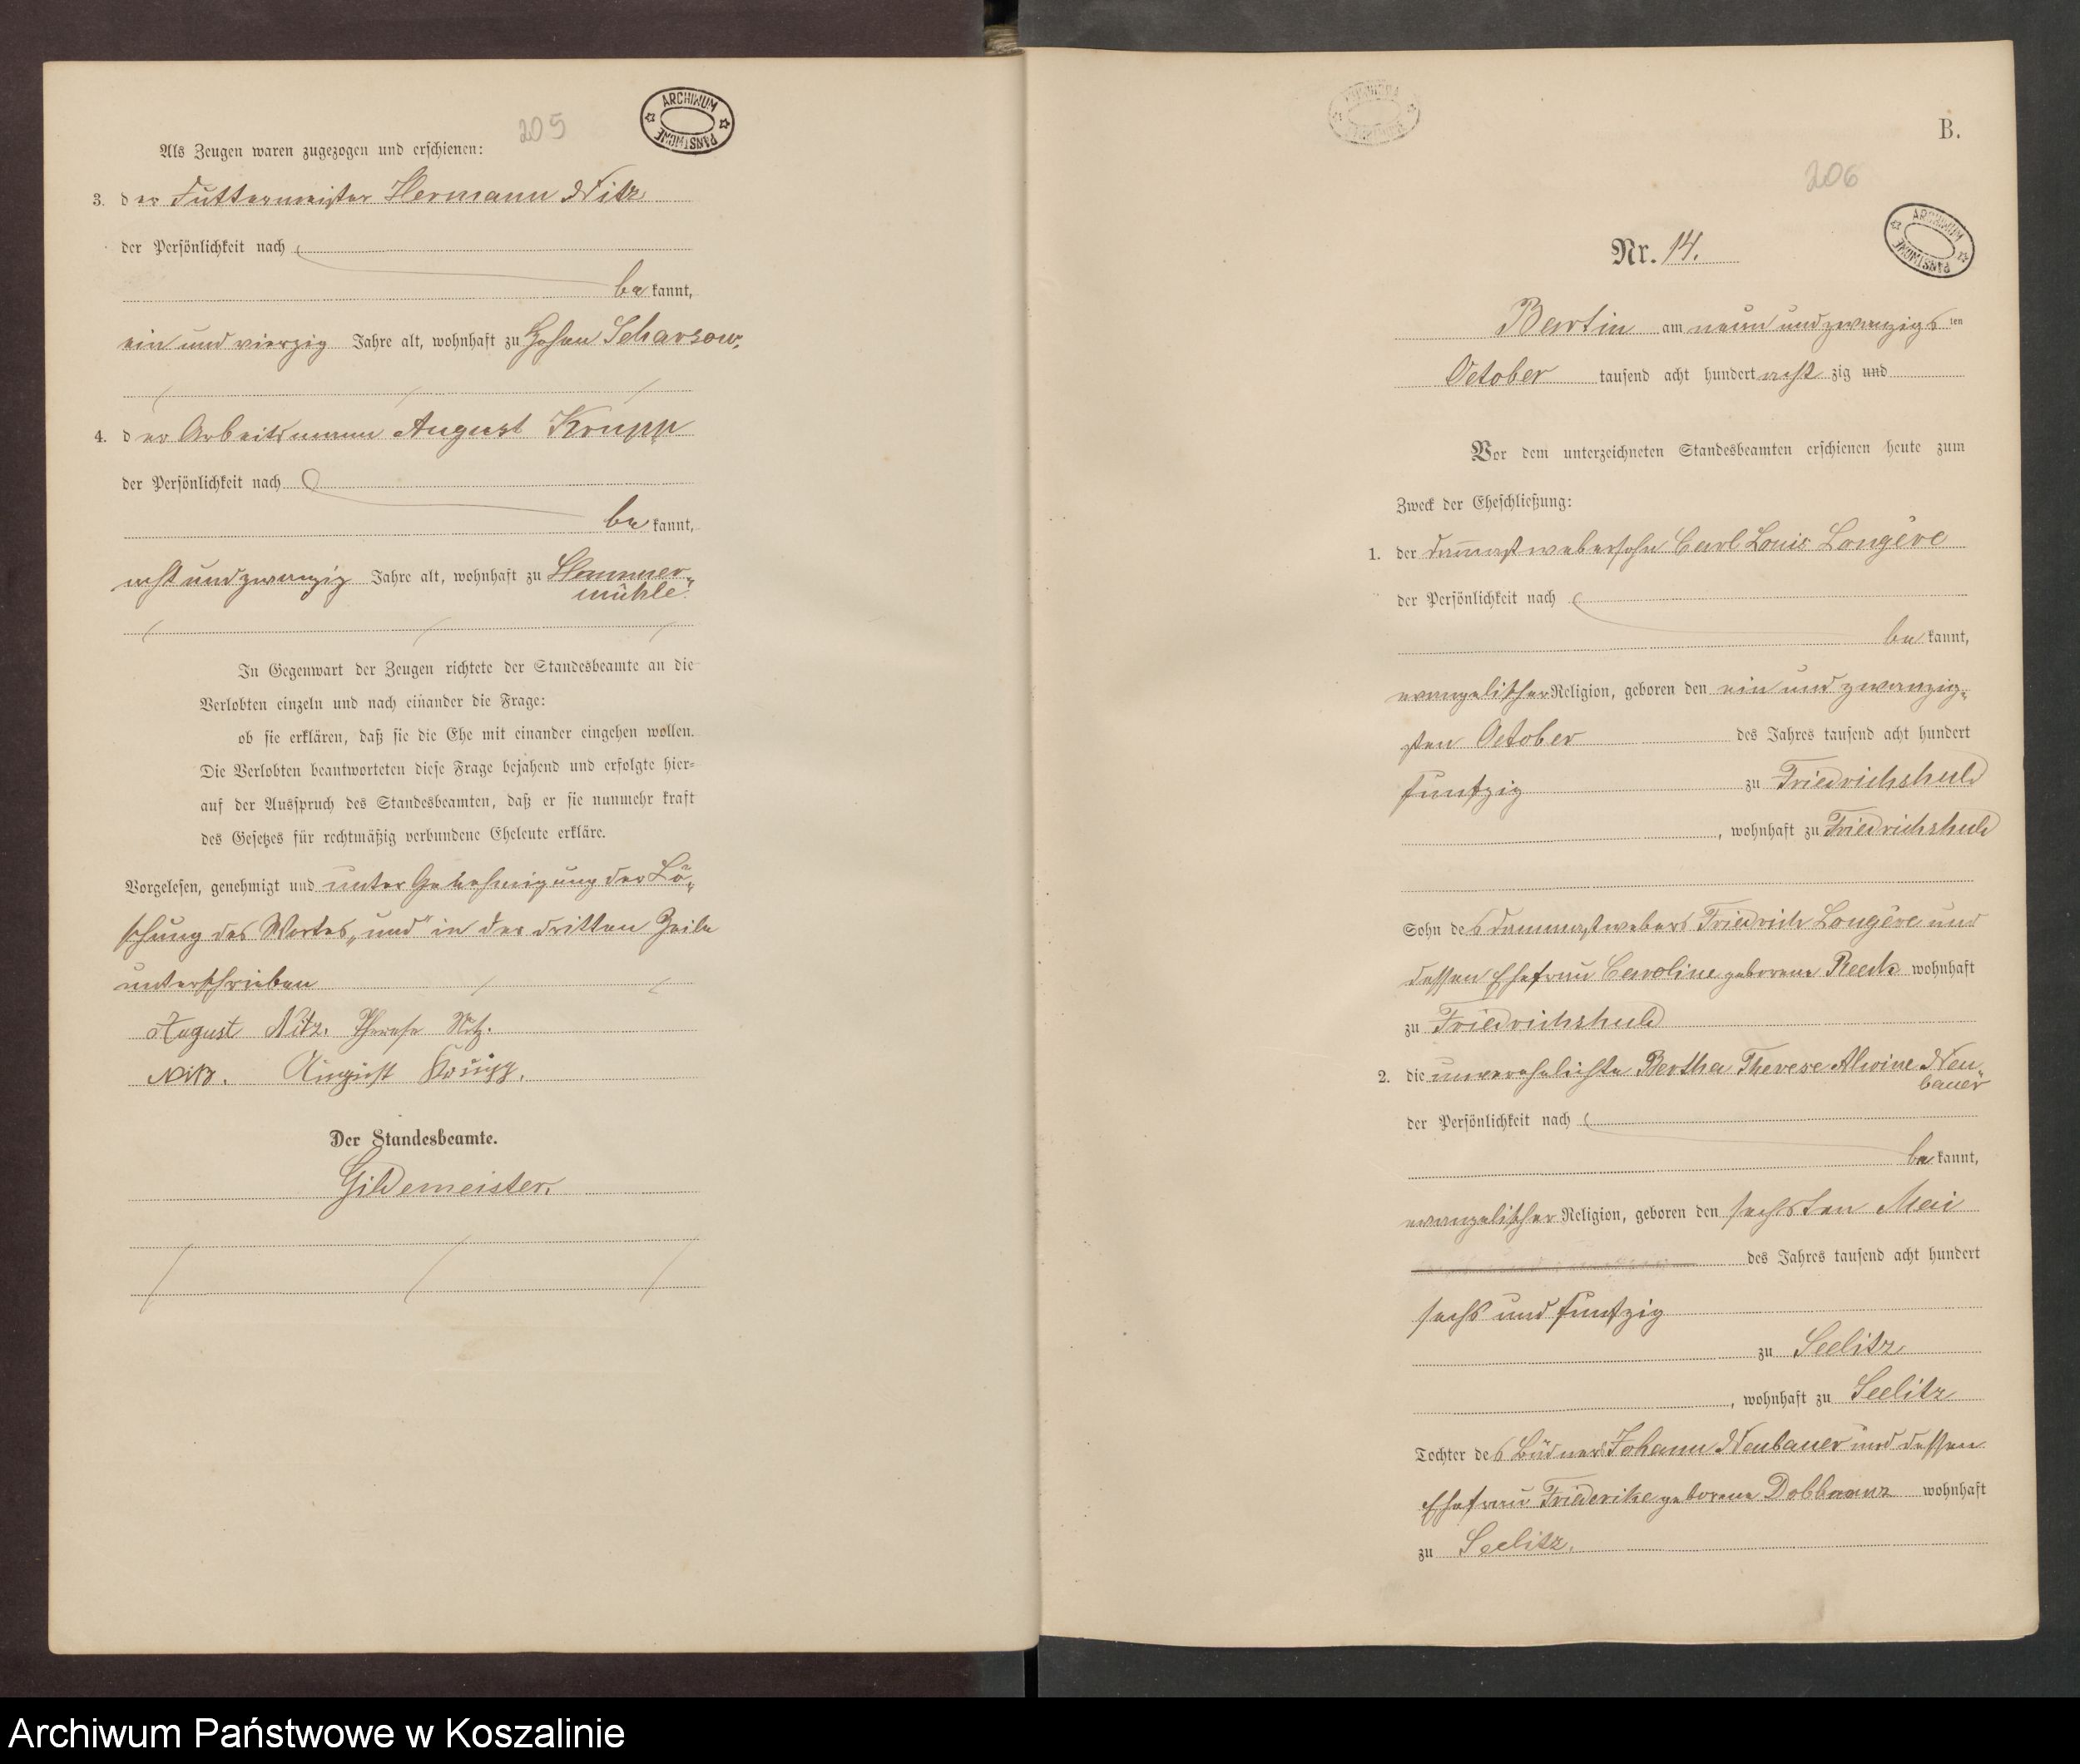 205
ARCHIWUM PAŃSTWOWE
Als Zeugen waren zugezogen und erschienen:
3. der Futtermeister Hermann Nitz
der Persönlichkeit nach
be kannt,
ein und vierzig Jahre alt, wohnhaft zu Hohen Scharsow,
4. der Arbeitsmann August Krupp
der Persönlichkeit nach
be kannt,
acht und zwanzig Jahre alt, wohnhaft zu Hammer„
mühle.
In Gegenwart der Zeugen richtete der Standesbeamte an die
Verlobten einzeln und nach einander die Frage:
ob sie erklären, daß sie die Ehe mit einander eingehen wollen.
Die Verlobten beantworteten diese Frage bejahend und erfolgte hier-
auf der Ausspruch des Standesbeamten, daß er sie nunmehr kraft
des Gesetzes für rechtmäßig verbundene Eheleute erkläre.
Vorgelesen, genehmigt und unter Genehmigung der Lö„
schung des Wortes „und" in der dritten Zeile
unterschrieben
August Nitz. Therese Nitz.
Nitz. August Krupp.
Der Standesbeamte.
Gildemeister.
B.
206
ARCHIWUM PAŃSTWOWE
Nr. 14.
Bartin am neun und zwanzigs ten
October tausend acht hundert acht zig und
Vor dem unterzeichneten Standesbeamten erschienen heute zum
Zweck der Eheschließung:
1. der Dam̅astwebersohn Carl Louis Longère
der Persönlichkeit nach
be kannt,
evangelischer Religion, geboren den ein und zwanzig„
sten October des Jahres tausend acht hundert
fünfzig zu Friedrichshuld
, wohnhaft zu Friedrichshuld
Sohn des Dammastwebers Friedrich Longère und
dessen Ehefrau Caroline geborene Reeck wohnhaft
zu Friedrichshuld
2. die unverehelichte Bertha Therese Alwine Neu„
bauer
der Persönlichkeit nach
be kannt,
evangelischer Religion, geboren den sechsten Mai
des Jahres tausend acht hundert
sechs und fünfzig
zu Seelitz
, wohnhaft zu Seelitz
Tochter des Büdners Johann Neubauer und dessen
Ehefrau Friederike geborene wohnhaft
zu Seelitz.
Archiwum Państwowe w Koszalinie